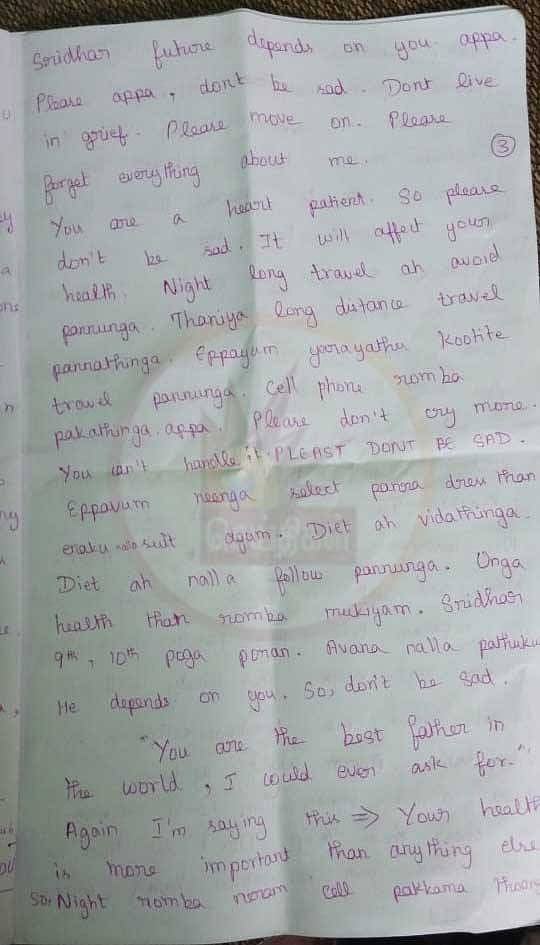 Sridhar future depends on you appa.
Please appa, dont be sad. Dont live
in grief. Please move on. Please
forget everything about me.
3
You are a heart patient. So please
don't be sad. It will affect your
health. Night long travel ah avoid
pannunga. Thaniya long distance travel
pannathinga. Eppayum yarayathu kootite
travel pannunga. Cell phone romba
pakathinga appa. Please don't cry more.
You can't handle it. PLEAST DONT BE SAD.
Eppavum neenga select panra dress than
enaku suit agum. Diet ah vidathinga.
Diet ah nalla follow pannunga. Unga
health than romba mukiyam. Sridhar
9th, 10th poga poran. Avana nalla pathuku
He depends on you. So, don't be sad.
"You are the best father in
the world, I would even ask for."
Again I'm saying this => Your health
is more important than anything else
so, Night romba neram cell pakkama